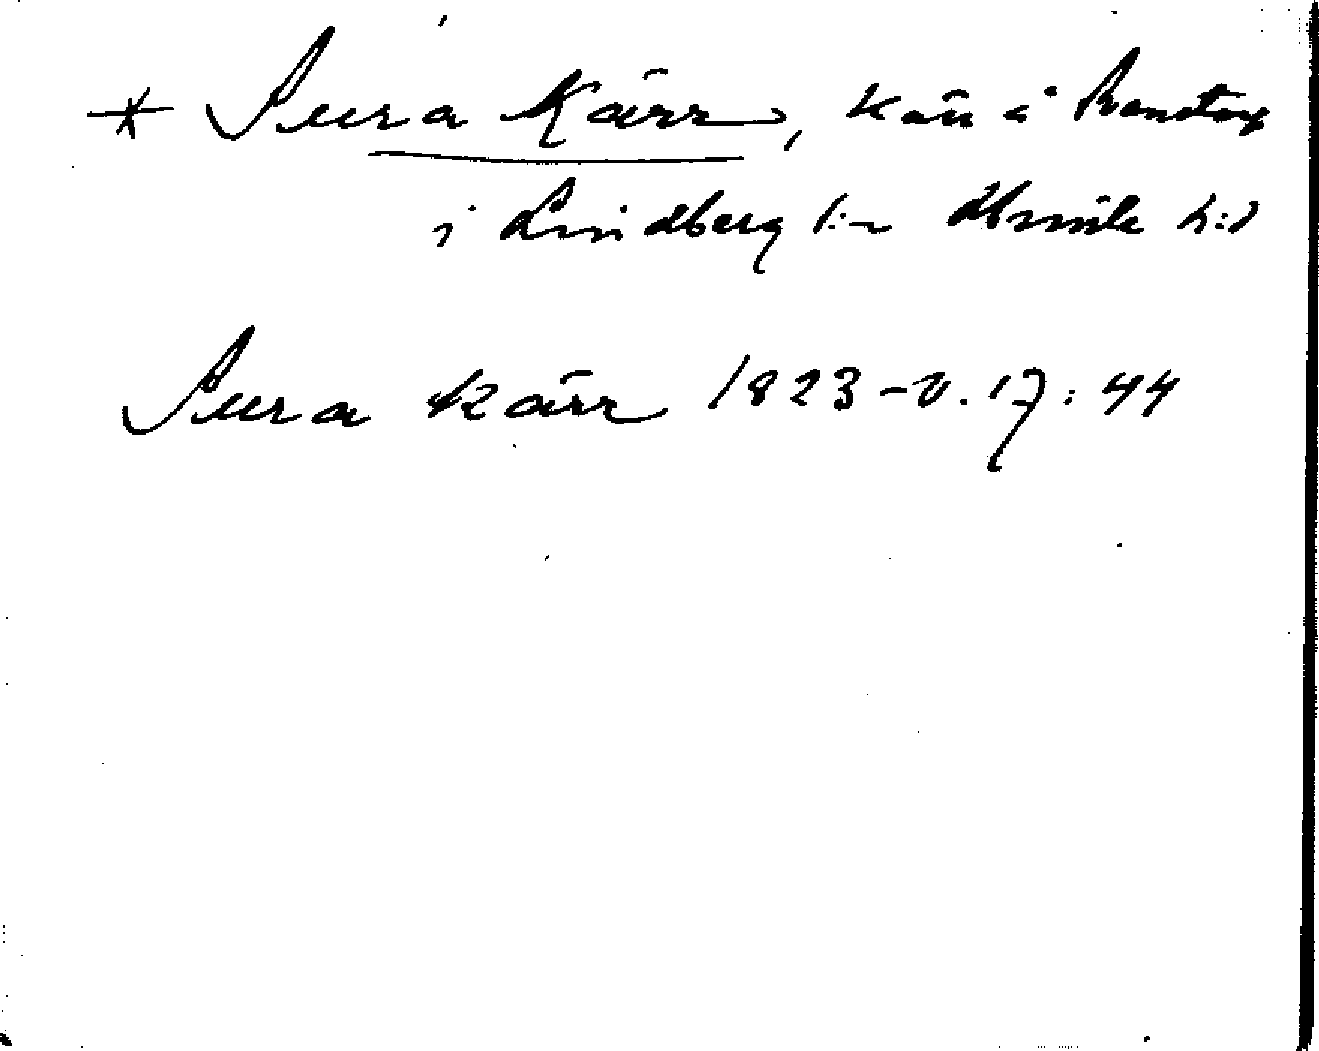 * Sura Kärr, kärr i Banstorp
i Lindberg l:n Himle h:d
Sura kärr 1823-V.17:44